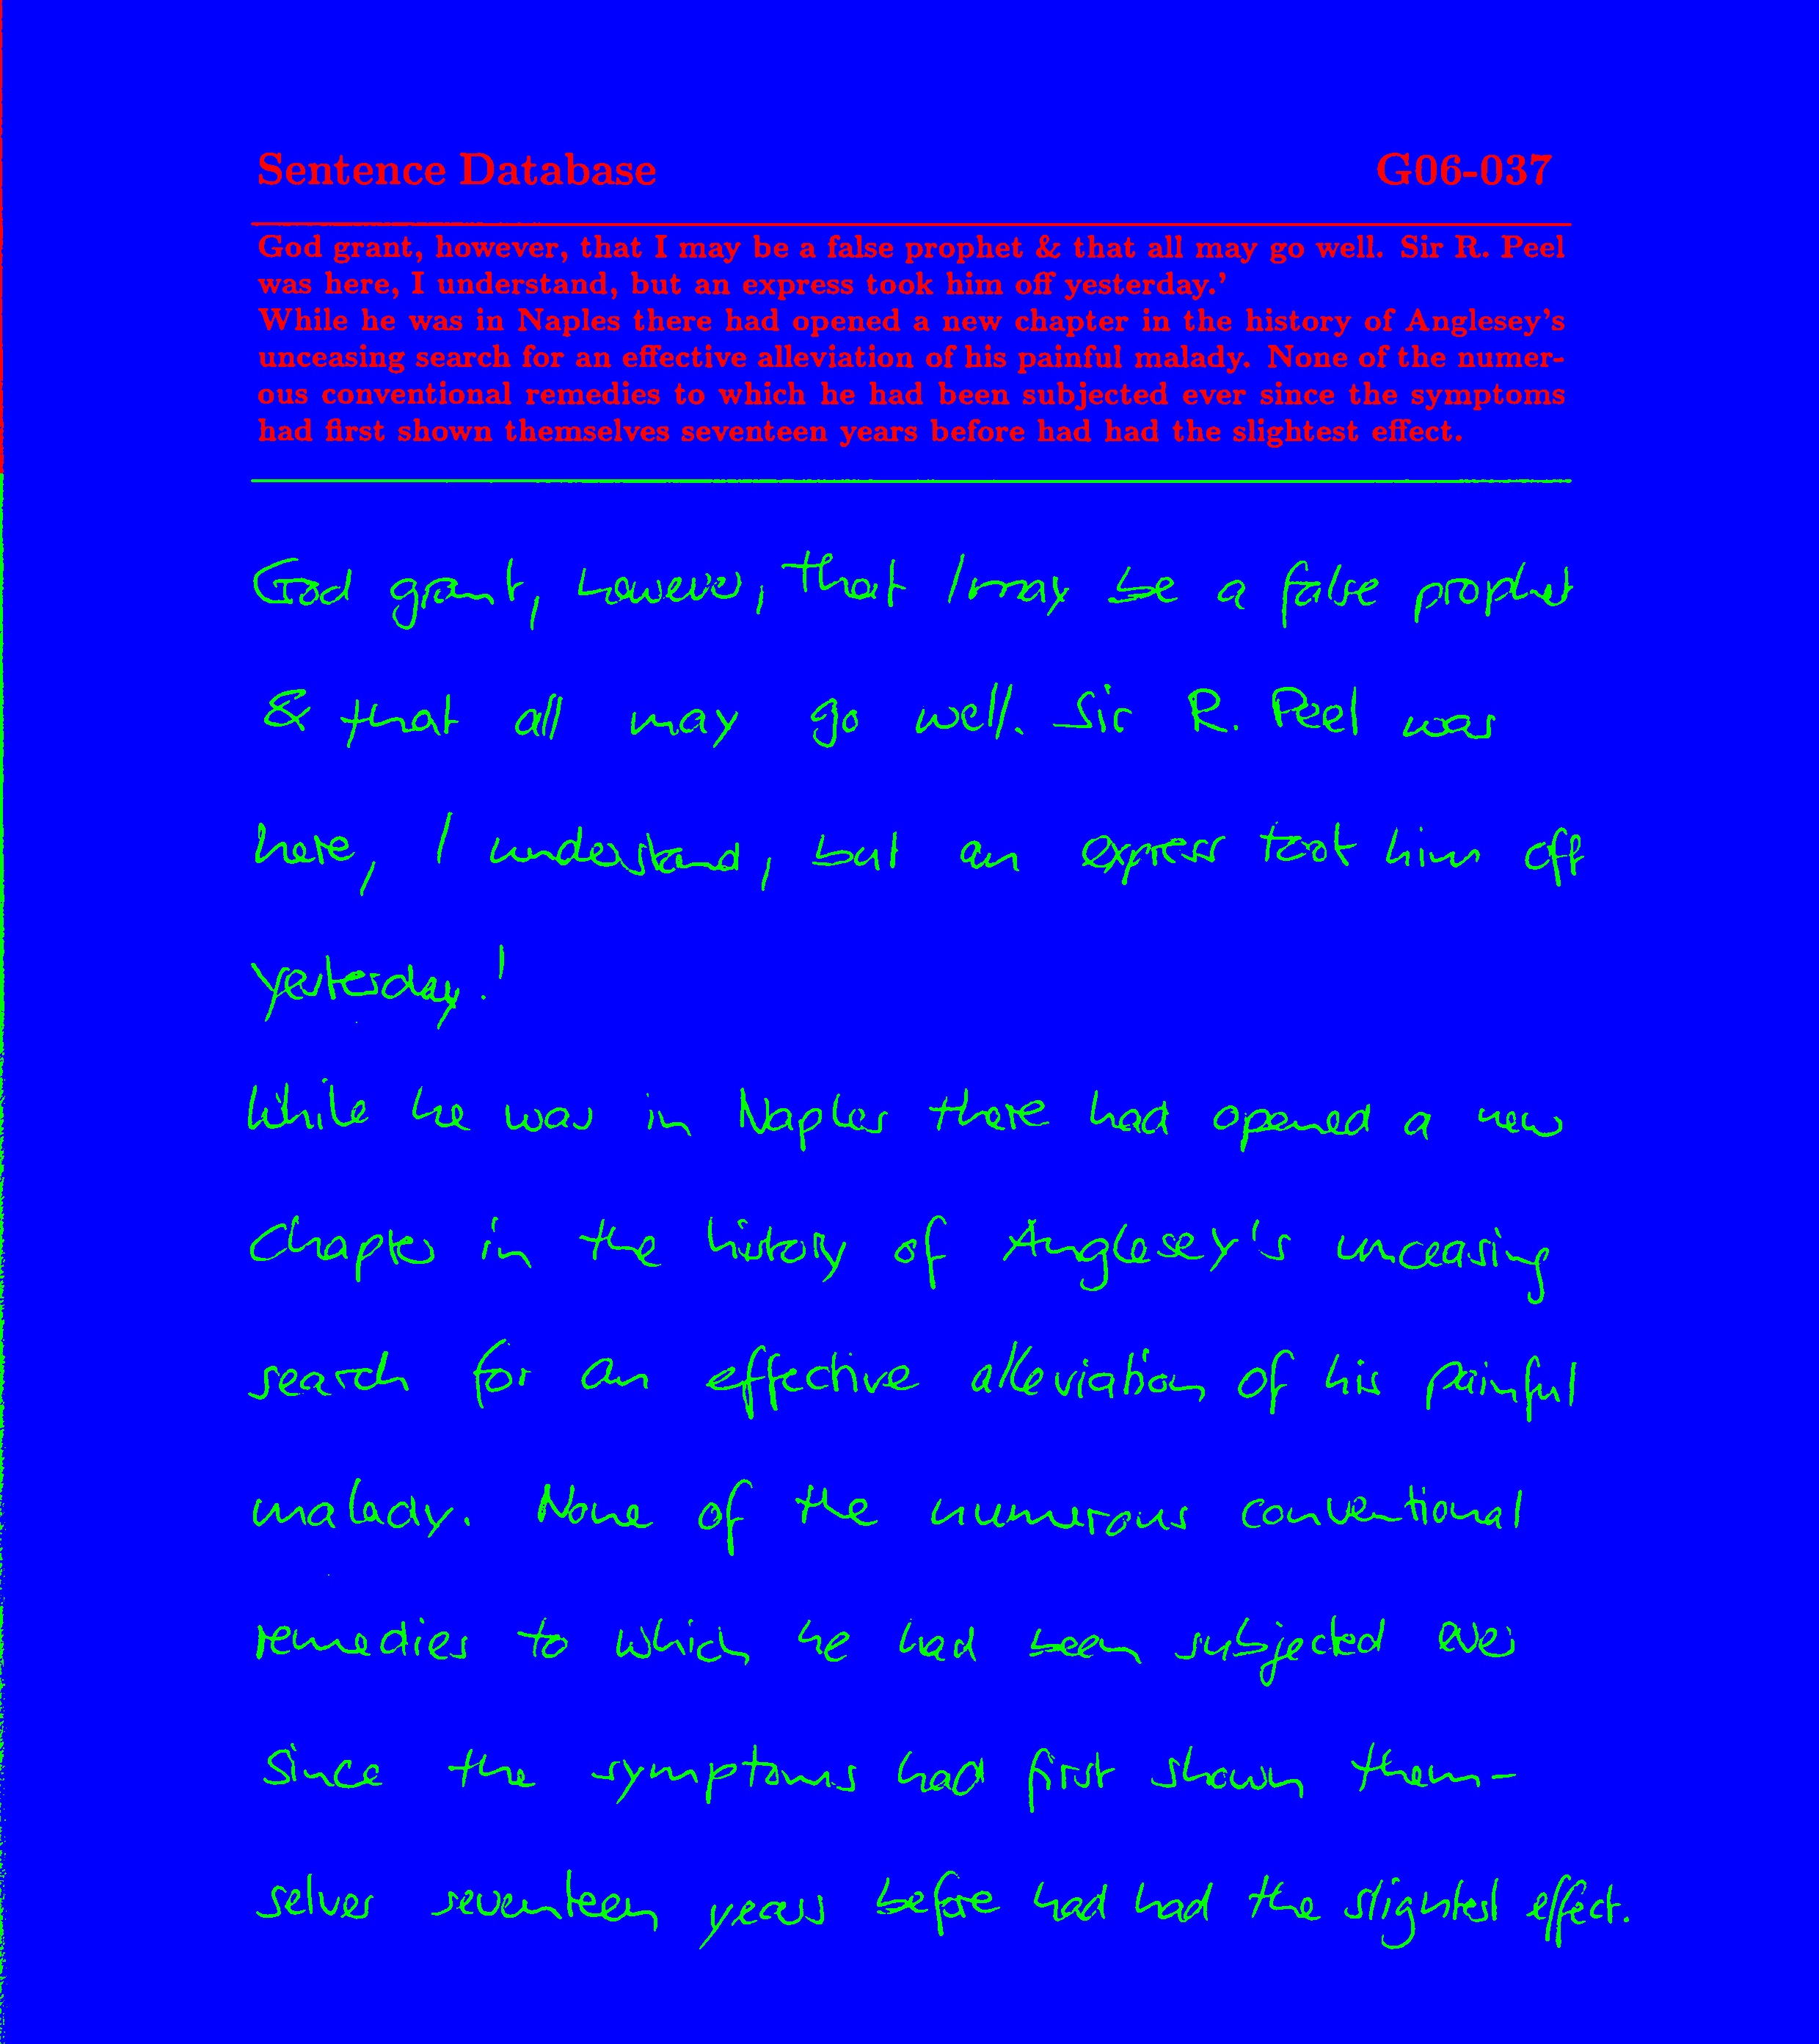 Sentence Database G06-037
God grant, however, that I may be a false prophet & that all may go well. Sir R. Peel
was here, I understand, but an express took him off yesterday.'
While he was in Naples there had opened a new chapter in the history of Anglesey's
unceasing search for an effective alleviation of his painful malady. None of the numer-
ous conventional remedies to which he had been subjected ever since the symptoms
had first shown themselves seventeen years before had had the slightest effect.
God grant, however, that I may be a false prophet
& that all may go well. Sir R. Peel was
here, I understand, but an express took him off
yesterday.'
While he was in Naples there had opened a new
Chapter in the history of Anglesey's unceasing
search for an effective alleviation of his painful
malady. None of the numerous conventional
remedies to which he had been subjected ever
Since the symptoms had first shown them-
selves seventeen years before had had the slightest effect.